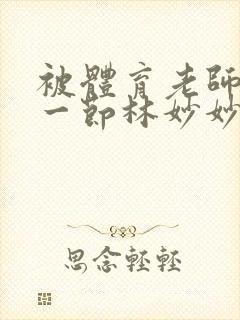 被體育老師
一節林妙妙
思念輕輕